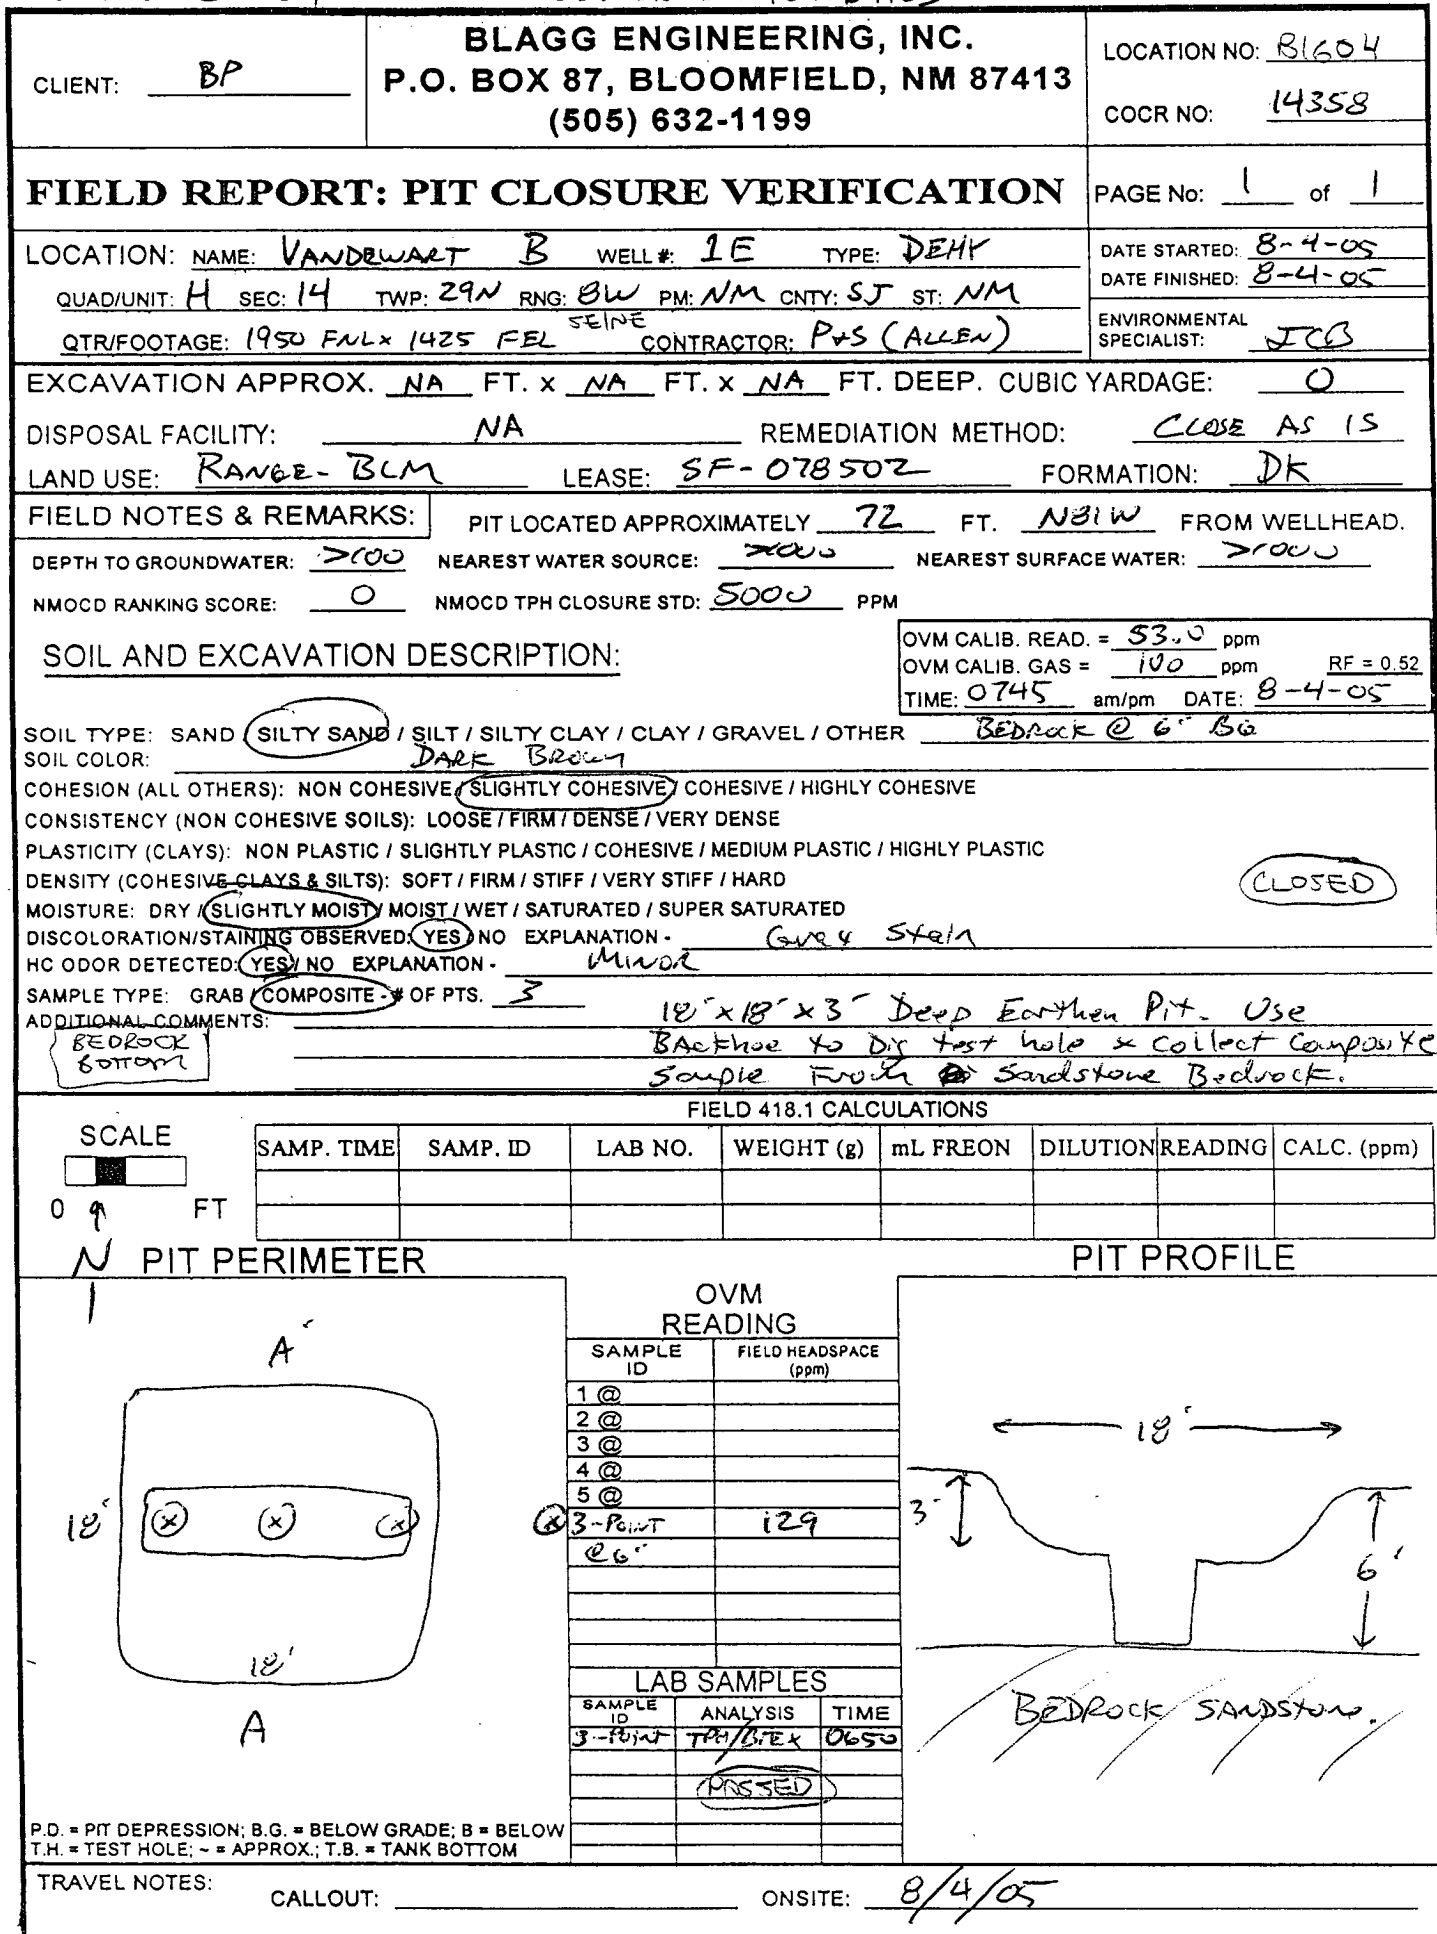 BLAGG ENGINEERING, INC.
P.O. BOX 87, BLOOMFIELD, NM 87413
(505) 632-1199
CLIENT: BP
LOCATION NO: B1604
COCR NO: 14358
FIELD REPORT: PIT CLOSURE VERIFICATION
PAGE No: 1 of 1
LOCATION: NAME: VANDEWART B WELL #: 1E TYPE: DEHY
QUAD/UNIT: H SEC: 14 TWP: 29N RNG: 8W PM: NM CNTY: SJ ST: NM
QTR/FOOTAGE: 1950 FNL x 1425 FEL SE/NE CONTRACTOR: P+S (ALLEN)
DATE STARTED: 8-4-05
DATE FINISHED: 8-4-05
ENVIRONMENTAL
SPECIALIST: JCB
EXCAVATION APPROX. NA FT. x NA FT. x NA FT. DEEP. CUBIC YARDAGE: 0
DISPOSAL FACILITY: NA REMEDIATION METHOD: CLOSE AS IS
LAND USE: RANGE - BLM LEASE: SF-078502 FORMATION: DK
FIELD NOTES & REMARKS: PIT LOCATED APPROXIMATELY 72 FT. N81W FROM WELLHEAD.
DEPTH TO GROUNDWATER: >100 NEAREST WATER SOURCE: >1000 NEAREST SURFACE WATER: >1000
NMOCD RANKING SCORE: 0 NMOCD TPH CLOSURE STD: 5000 PPM
SOIL AND EXCAVATION DESCRIPTION:
OVM CALIB. READ. = 53.0 ppm
OVM CALIB. GAS = 100 ppm RF = 0.52
TIME: 0745 am/pm DATE: 8-4-05
SOIL TYPE: SAND / SILTY SAND / SILT / SILTY CLAY / CLAY / GRAVEL / OTHER BEDROCK @ 6' BG
SOIL COLOR: DARK BROWN
COHESION (ALL OTHERS): NON COHESIVE / SLIGHTLY COHESIVE / COHESIVE / HIGHLY COHESIVE
CONSISTENCY (NON COHESIVE SOILS): LOOSE / FIRM / DENSE / VERY DENSE
PLASTICITY (CLAYS): NON PLASTIC / SLIGHTLY PLASTIC / COHESIVE / MEDIUM PLASTIC / HIGHLY PLASTIC
DENSITY (COHESIVE CLAYS & SILTS): SOFT / FIRM / STIFF / VERY STIFF / HARD
CLOSED
MOISTURE: DRY / SLIGHTLY MOIST / MOIST / WET / SATURATED / SUPER SATURATED
DISCOLORATION/STAINING OBSERVED: YES / NO EXPLANATION - Gray Stain
HC ODOR DETECTED: YES / NO EXPLANATION - MINOR
SAMPLE TYPE: GRAB / COMPOSITE - # OF PTS. 3
ADDITIONAL COMMENTS: 18' x 18' x 3' Deep Earthen Pit. Use
BEDROCK BOTTOM
Backhoe to Dig test hole & Collect Composite
Sample From Sandstone Bedrock.
FIELD 418.1 CALCULATIONS
SCALE
0 FT
SAMP. TIME SAMP. ID LAB NO. WEIGHT (g) mL FREON DILUTION READING CALC. (ppm)
N PIT PERIMETER
PIT PROFILE
A'
18'
18'
A
OVM
READING
SAMPLE ID FIELD HEADSPACE (ppm)
1 @
2 @
3 @
4 @
5 @
3-Point 129
@ 6'
LAB SAMPLES
SAMPLE ID ANALYSIS TIME
3-Point TPH/BTEX 0650
PASSED
18'
3'
6'
BEDROCK SANDSTONE.
P.D. = PIT DEPRESSION; B.G. = BELOW GRADE; B = BELOW
T.H. = TEST HOLE; ~ = APPROX.; T.B. = TANK BOTTOM
TRAVEL NOTES: CALLOUT: ONSITE: 8/4/05